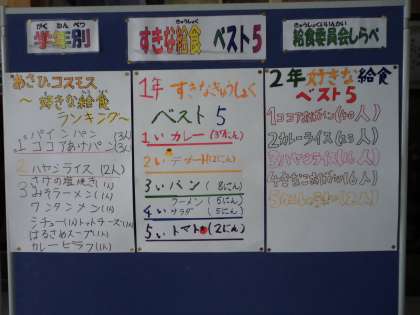 がくねんべつ
学年別
きゅうしょく
すきな給食 ベスト5
きゅうしょくいいんかい
給食委員会しらべ
あさひ、コスモス
～好きな給食
ランキング～
1い パインパン (3人)
ココアあげパン (3人)
2 ハヤシライス (2人)
3い さけの塩焼き(1人)
みそラーメン(1人)
ワンタンメン(1人)
シチュー(1人)
はるさめスープ(1人)
カレーピラフ(1人)
1年 すきなきゅうしょく
ベスト5
1い カレー (37にん)
2い デザート (12にん)
3い パン (8にん)
ラーメン (5にん)
4い サラダ (5にん)
5い トマト (2にん)
2年 好きな給食
ベスト5
1 ココアあげパン
2 カレーライス
3 ハヤシライス
4 きなこあげパン
5